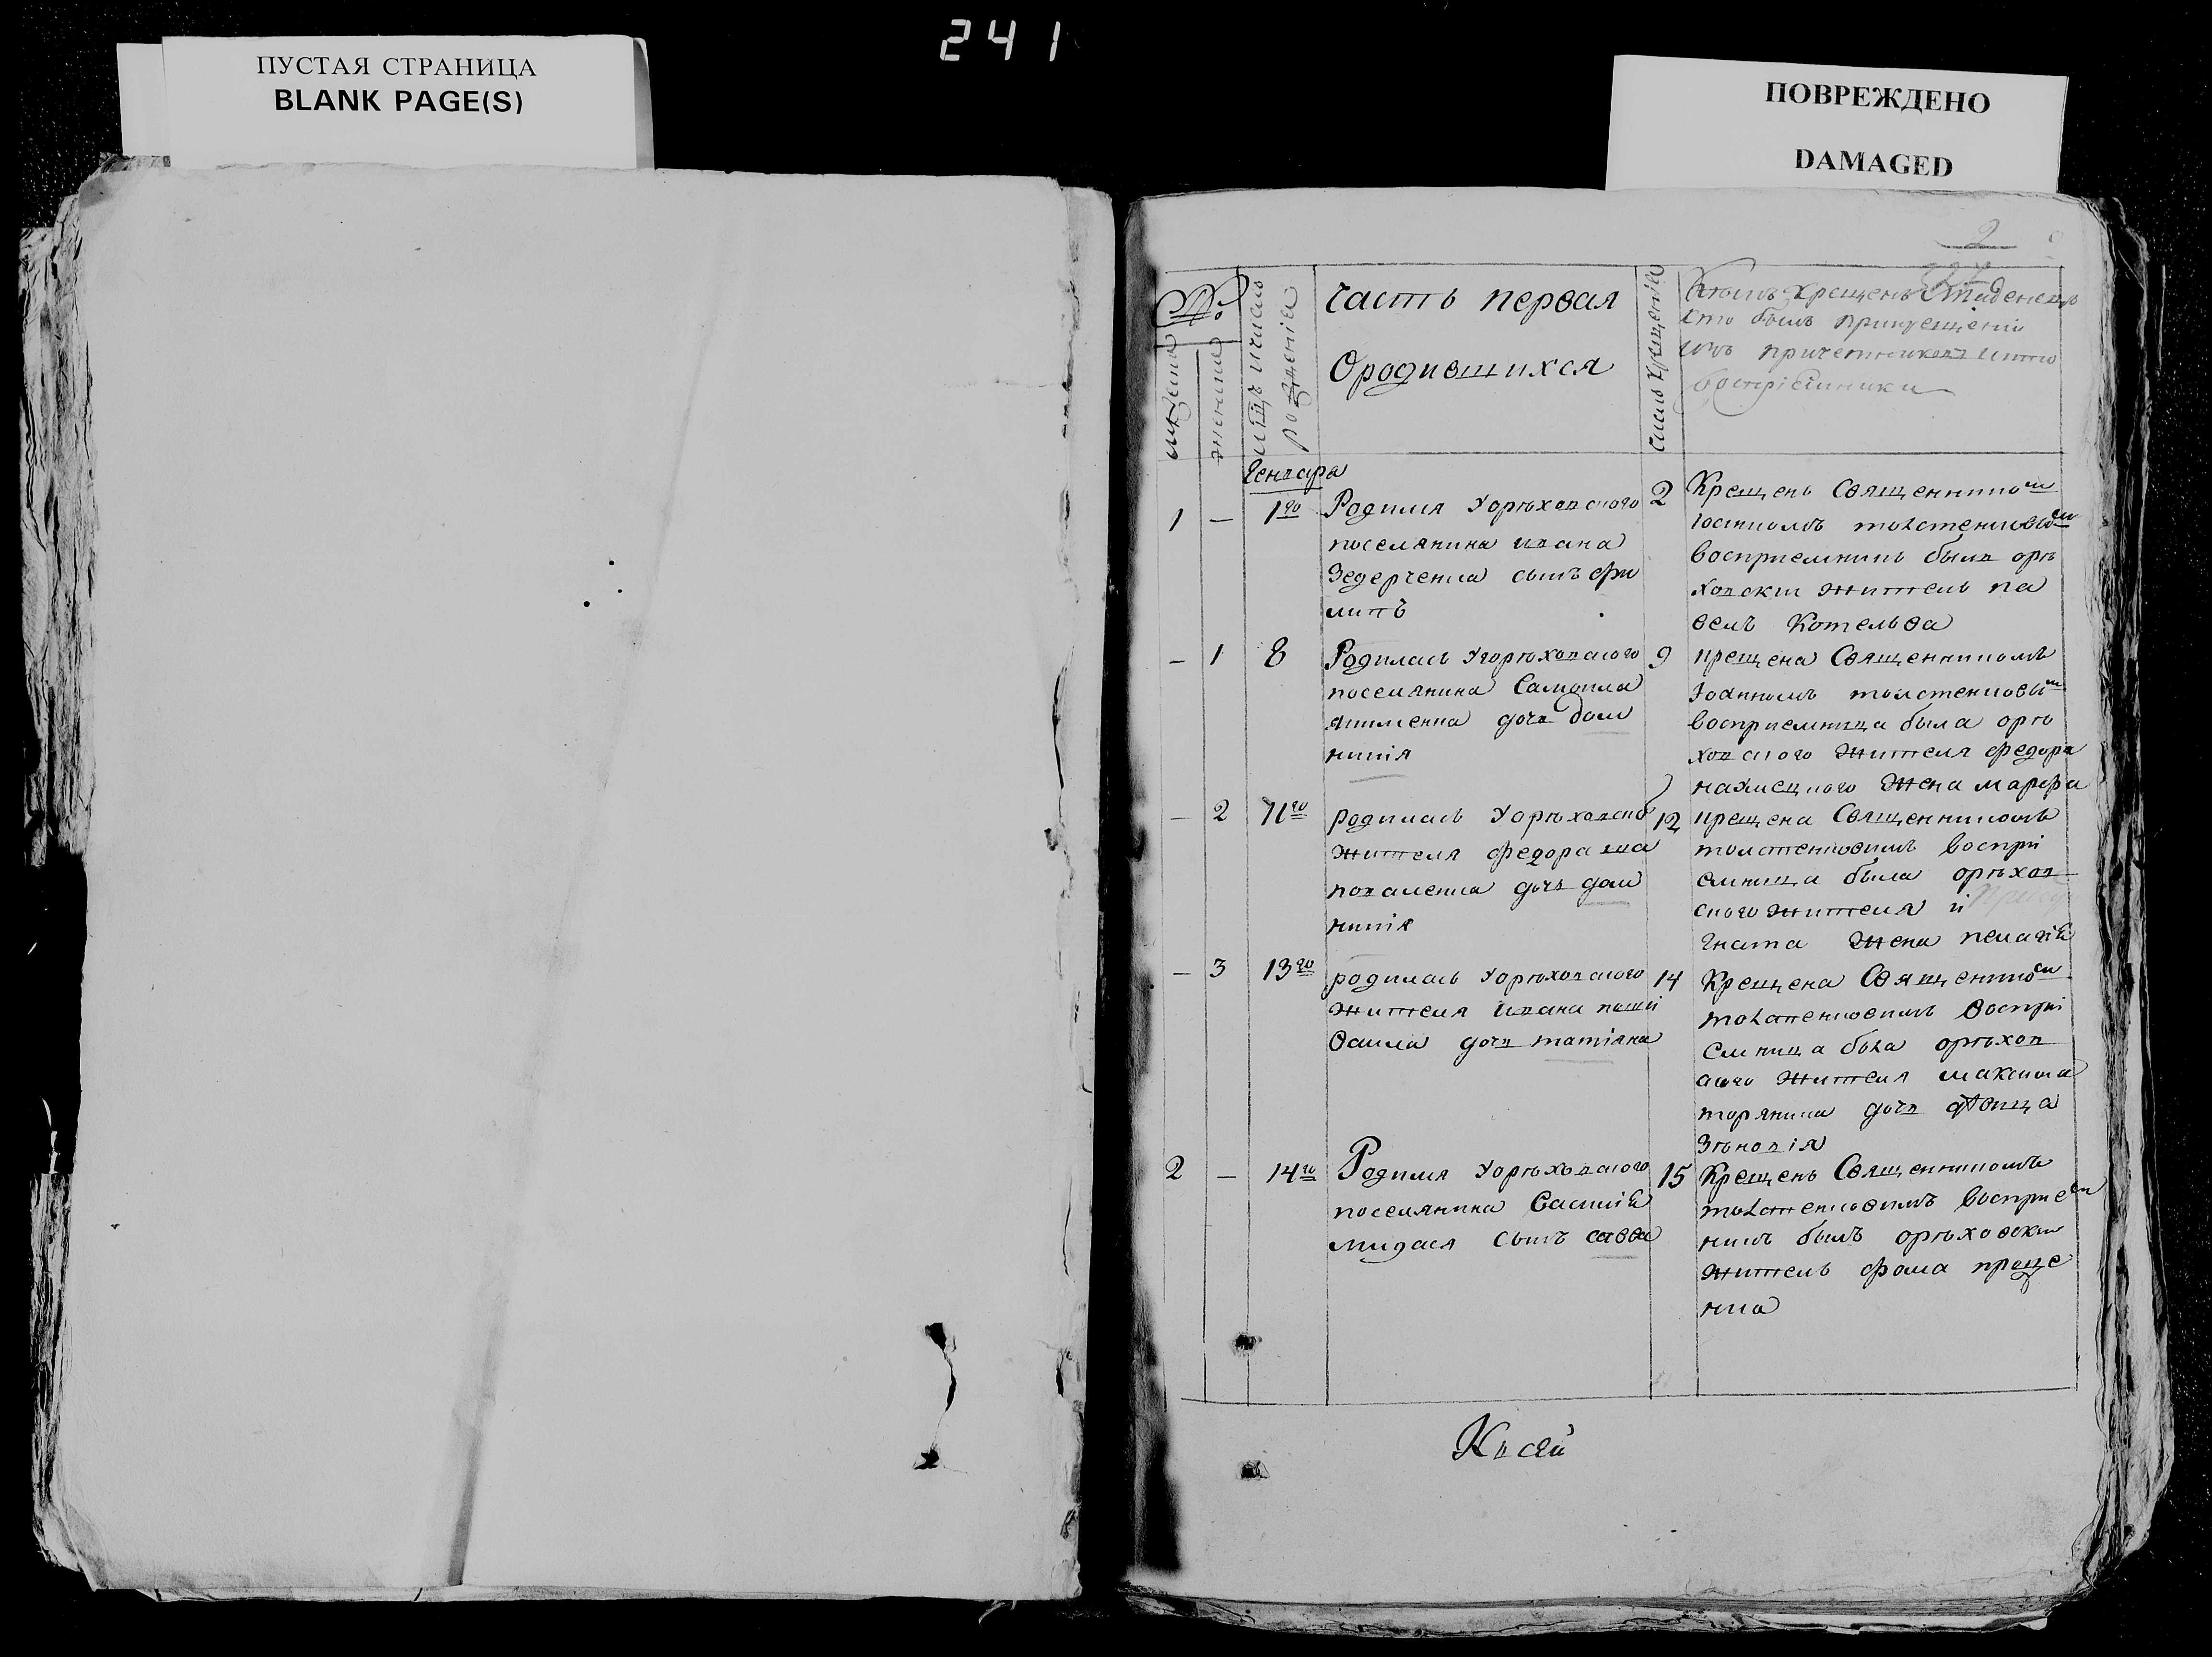 241
ПУСТАЯ СТРАНИЦА
BLANK PAGE(S)
ПОВРЕЖДЕНО
DAMAGED
2
№
мужеска
женска
мѣсяцъ и число
рожденія
Часть первая
О родившихся
число крещенія
Кѣмъ крещенъ младенецъ
кто былъ при крещеніи
изъ причетниковъ и кто
воспріемники
Генваря
1
—
1го
Родился у орѣховского
поселянина ивана
Зедерченка сынъ фи
липъ
2
Крещенъ Священником
Іоанномъ толстенковым
восприемникъ былъ орѣ
ховски житель па
велъ Котельва
—
1
8
Родилась у горѣховского
поселянина Самоила
якименка дочь дом
никія
9
крещена Священникомъ
Іоанномъ толстенковым
восприемница была орѣ
ховского жителя федора
жена марфа
—
2
11го
родилась у орѣховско
жителя федора ша
поваленка дочь дом
никія
12
крещена Священникомъ
толстенковимъ воспрі
емница была орѣхов
ского жителя и
гната жена пелагія
—
3
13го
родилась у орѣховского
жителя ивана
дочь татіяна
14
Крещена Священником
толстенковимъ воспрі
емница была орѣхов
ского жителя максима
торяника дочь дѣвица
Зѣновія
2
—
14го
Родился у орѣховского
поселянина Василія
мидася сынъ савва
15
Крещенъ Священникомъ
толстенковимъ восприем
никъ былъ орѣховски
житель фома проце
нка
Къ сей